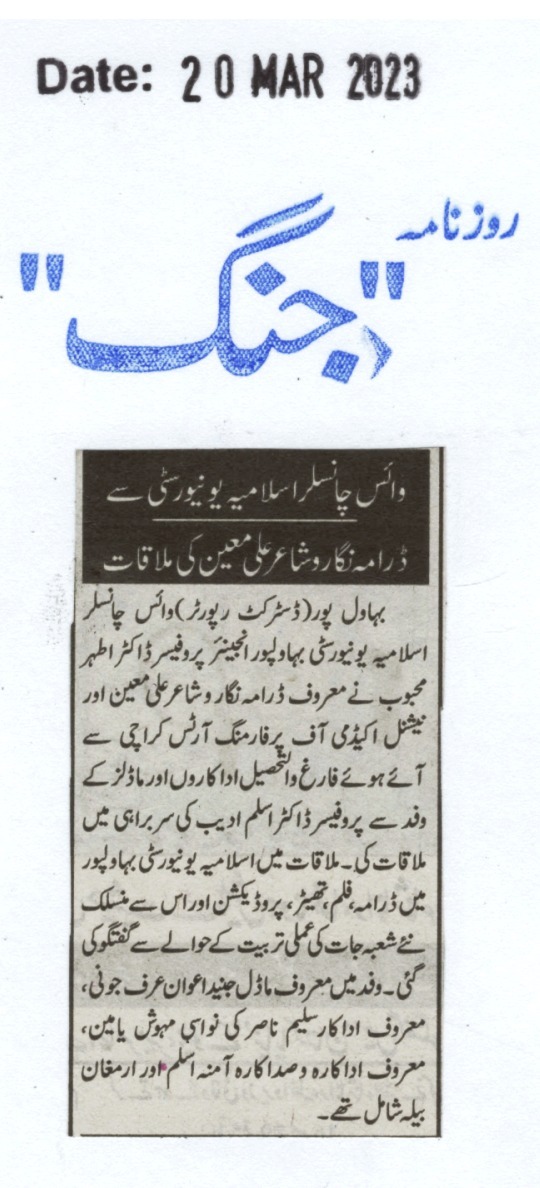 Date: 20 MAR 2023
روزنامہ
"جنگ"
وائس چانسلر اسلامیہ یونیورسٹی سے
ڈرامہ نگار و شاعر علی معین کی ملاقات
بہاول پور (ڈسٹرکٹ رپورٹر) وائس چانسلر
اسلامیہ یونیورسٹی بہاولپور انجینئر پروفیسر ڈاکٹر اطہر
محبوب نے معروف ڈرامہ نگار و شاعر علی معین اور
نیشنل اکیڈمی آف پرفارمنگ آرٹس کراچی سے
آئے ہوئے فارغ والتحصیل اداکاروں اور ماڈلز کے
وفد سے پروفیسر ڈاکٹر اسلم ادیب کی سربراہی میں
ملاقات کی۔ ملاقات میں اسلامیہ یونیورسٹی بہاولپور
میں ڈرامہ، فلم، تھیٹر، پروڈیکشن اور اس سے منسلک
نئے شعبہ جات کی عملی تربیت کے حوالے سے گفتگو کی
گئی۔ وفد میں معروف ماڈل جنید اعوان عرف جونی،
معروف اداکار سلیم ناصر کی نواسی مہوش یامین،
معروف اداکارہ و صداکارہ آمنہ اسلم اور ارمغان
بیلہ شامل تھے۔